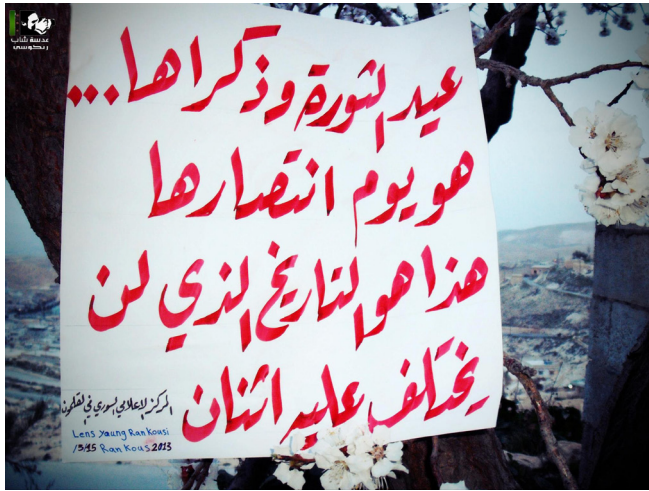 عدسة شاب
رنكوسي
عيد الثورة وذكراها...
هو يوم انتصارها
هذا هو التاريخ الذي لن
يختلف عليه اثنان
المركز الإعلامي السوري في القلمون
Lens Young Rankousi
/5/15 Rankous 2013